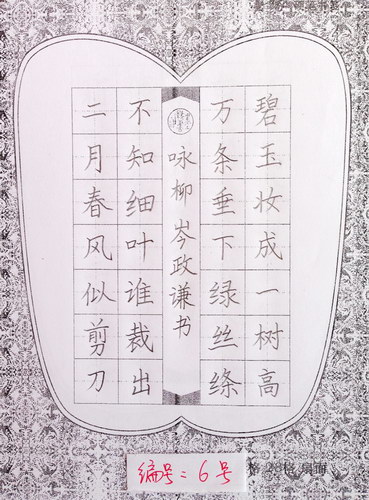 碧玉妆成一树高
万条垂下绿丝绦
咏柳岑政谦书
不知细叶谁裁出
二月春风似剪刀
编号：6号